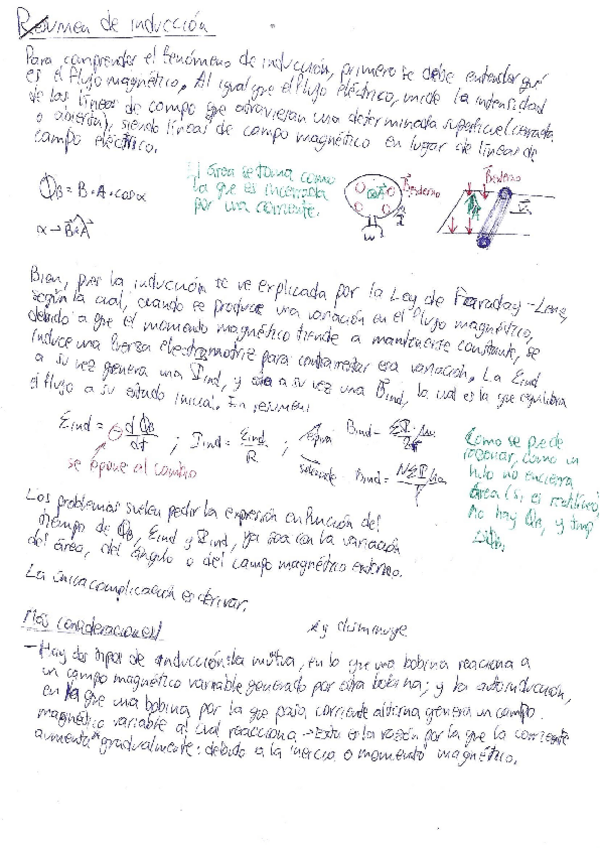 Resumen de inducción
Para comprender el fenómeno de inducción, primero se debe entender qué
es el flujo magnético. Al igual que el flujo eléctrico, mide la intensidad
de las líneas de campo que atraviesan una determinada superficie (cerrada
o abierta), siendo líneas de campo magnético en lugar de líneas de
campo eléctrico.
ΦB = B·A·cosα
α → B⃗·A⃗
El área se toma como
la que es encerrada
por una corriente.
B⃗externo
B⃗externo
Bien, pues la inducción se ve explicada por la Ley de Faraday-Lenz,
según la cual, cuando se produce una variación en el flujo magnético,
debido a que el momento magnético tiende a mantenerse constante, se
induce una fuerza electromotriz para contrarrestar esa variación. La Eind
a su vez genera una Iind, y esta a su vez una B⃗ind, la cual es la que equilibra
el flujo a su estado inicial. En resumen:
Eind = - dΦB/dt ; Iind = Eind/R ;
se opone al cambio
espira Bind =
solenoide Bind =
Como se puede
razonar, como un
hilo no encierra
área (si es rectilíneo),
no hay ΦB, y tmp
Los problemas suelen pedir la expresión en función del
tiempo de ΦB, Eind y Iind, ya sea con la variación
del área, del ángulo o del campo magnético externo.
La única complicación es derivar.
Más consideraciones
*y disminuye
- Hay dos tipos de inducción: la mutua, en la que una bobina reacciona a
un campo magnético variable generado por otra bobina; y la autoinducción,
en la que una bobina por la que pasa corriente alterna genera un campo
magnético variable al cual reacciona → Esta es la razón por la que la corriente
aumenta* gradualmente: debido a la "inercia o momento" magnético.